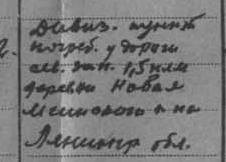 Дивиз. пункт
погреб. у дороги
сев. зап. 1,5 клм
деревни Новая
Ленингр обл.